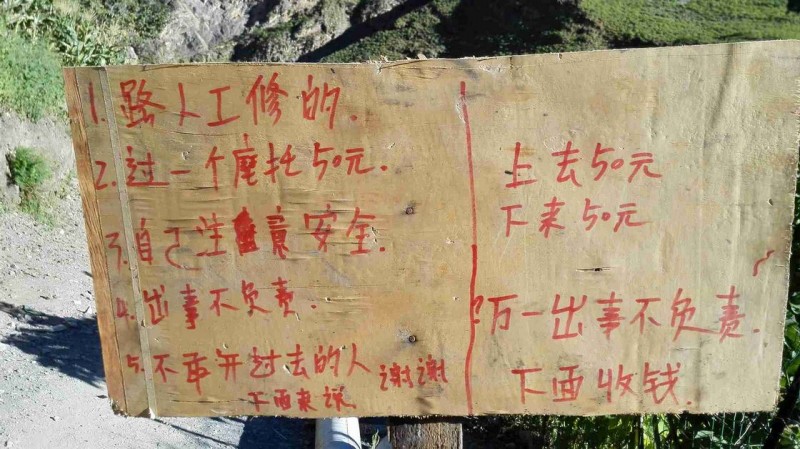 1. 路人工修的.
2. 过一个摩托50元.
3. 自己注意安全.
4. 出事不负责.
5. 不敢开过去的人 谢谢
下面来说
上去50元
下来50元
万一出事不负责.
下面收钱.